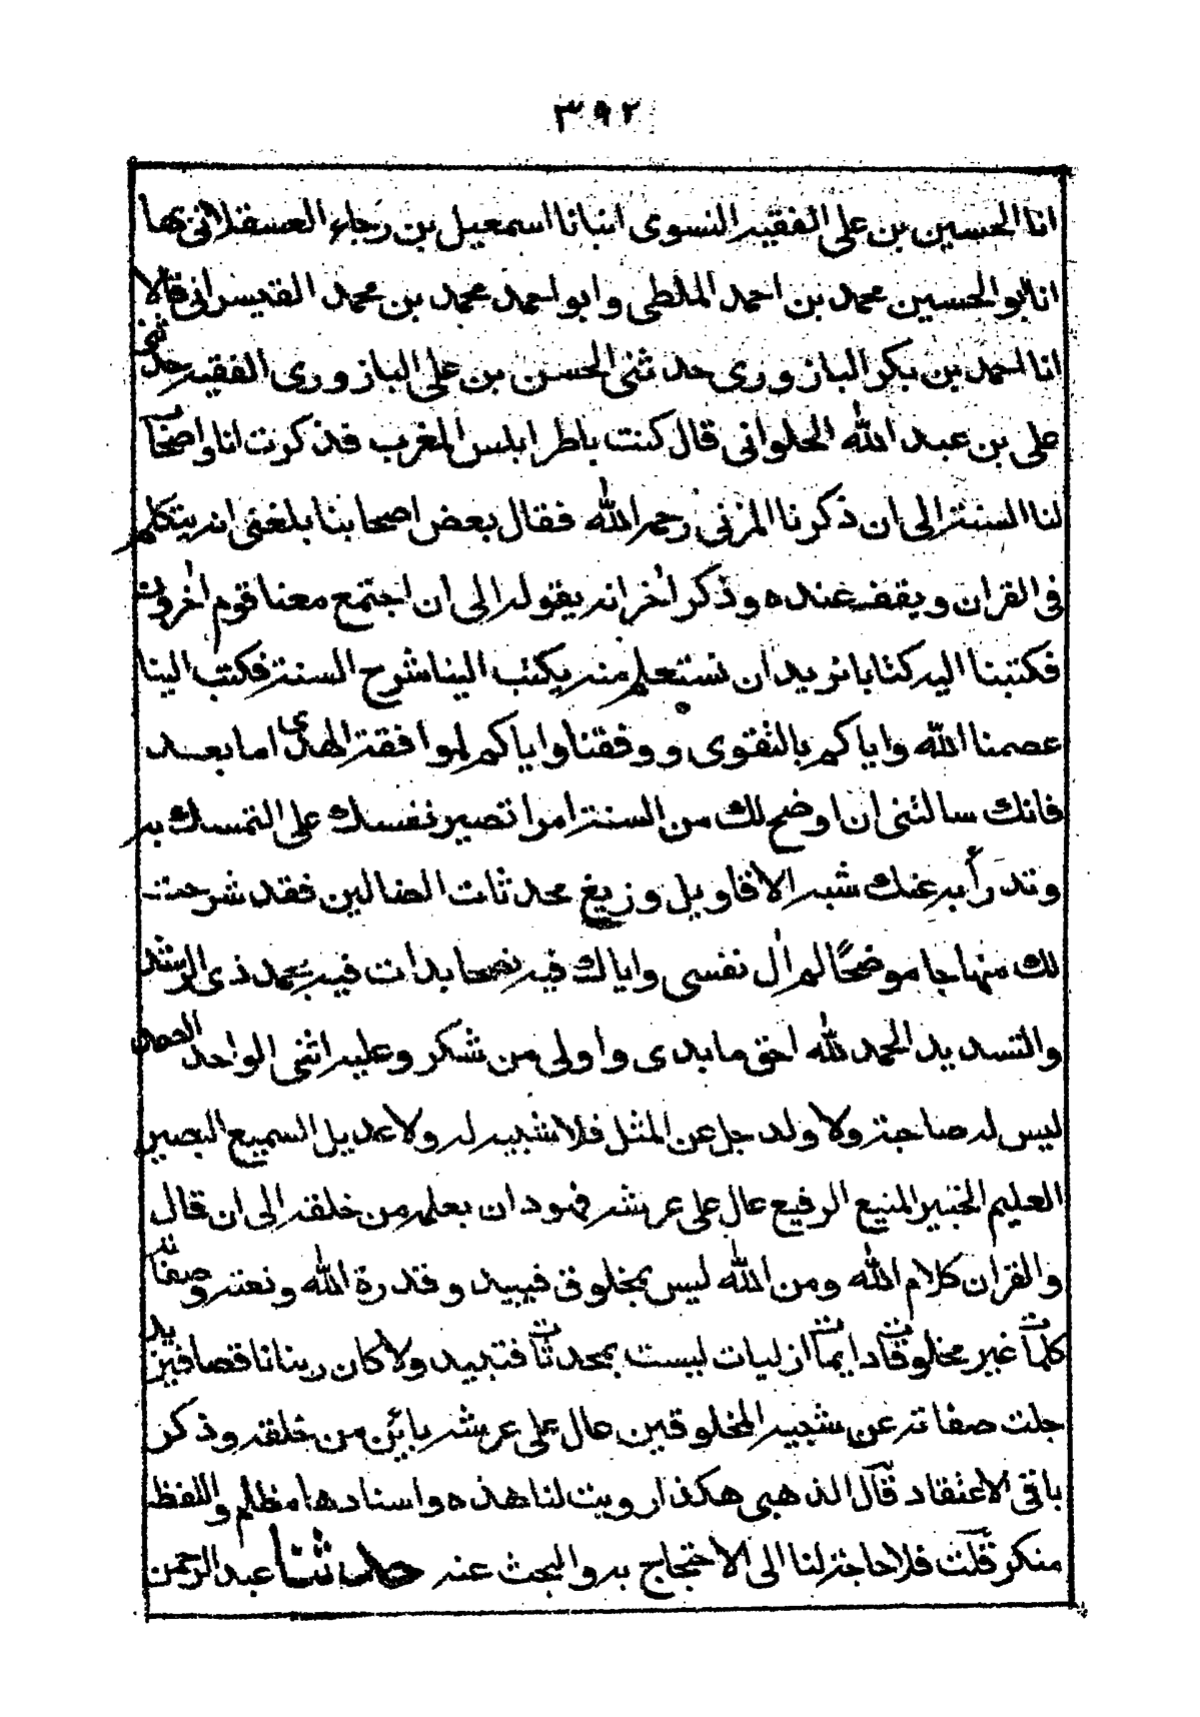 ٣٩٢
انا الحسين بن على الفقيه النسوى انبانا اسمعيل بن رجاء العسقلانى بها
انا ابو الحسين محمد بن احمد الملطى وابو احمد محمد بن محمد القيسرانى قالا
انا احمد بن بكر اليازورى حدثنى الحسن بن على اليازورى الفقيه حدثنى
على بن عبد الله الحلوانى قال كنت باطرابلس المغرب فذكرت انا واصحاب
لنا السنة الى ان ذكرنا المزنى رحمه الله فقال بعض اصحابنا بلغنى انه يتكلم
فى القران ويقف عنده وذكر اخر انه يقوله الى ان اجتمع معنا قوم اخرون
فكتبنا اليه كتابا نريد ان نستعلم منه يكتب الينا شرح السنة فكتب الينا
عصمنا الله واياكم بالتقوى ووفقنا واياكم لموافقة الهدى اما بعد
فانك سالتنى ان اوضح لك من السنة امرا تصير نفسك على التمسك به
وتدرأ به عنك شبه الاقاويل وزيغ محدثات الضالين فقد شرحت
لك منهاجا موضحًا لم ال نفسى واياك فيه نصحا بدات فيه بحمد ذى الرشد
والتسديد الحمد لله احق ما بدى واولى من شكر وعليه اثنى الواحد الصمد
ليس له صاحبة ولا ولد جل عن المثل فلا شبيه له ولا عديل السميع البصير
العليم الخبير المنيع الرفيع عال على عرشه فهو دان بعلمه من خلقه الى ان قال
والقران كلام الله ومن الله ليس بمخلوق فيبيد وقدرة الله ونعته وصفاته
كلمات غير مخلوقات دايمات ازليات ليست بمحدثات فتبيد ولا كان ربنا ناقصا فيزيد
جلت صفاته عن شبيه المخلوقين عال على عرشه بائن من خلقه وذكر
باقى الاعتقاد قال الذهبى هكذا رويت لنا هذه واسنادها مظلم واللفظ
منكر قلت فلا حاجة لنا الى الاحتجاج به والبحث عنه حدثنا عبد الرحمن